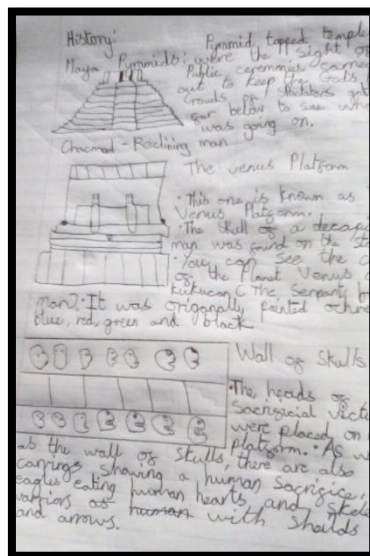 History:
Pyramid topped temple
Maya Pyramids: were the sight of
Public ceremonies carried
out to keep the Gods
Crowds of
gar below to see wh
was going on.
Chacmool - Reclining man
The venus Platform
• This one is known as
Venus Platform.
• The skull of a decap
man was found on the
• You can see the
of the Planet Venus
Kukucan (The Serpant
man). • It was origonally painted
blue, red, green and black
Wall of Skulls
• The heads of
Sacrificial victi
were placed on
platform. • As w
as the wall of skulls, there are also
carvings showing a human sacrifice,
eagles eating human hearts and skele
warriors as human with shields
and arrows.